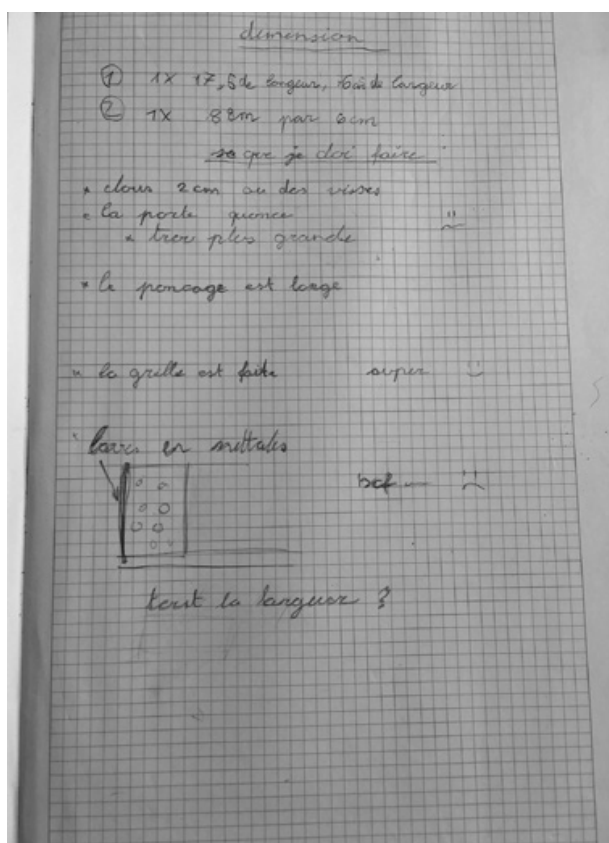 dimension
① 1X 17,5 de longeur, 6cm de largeur
② 1X 88m par 6cm
se que je doi faire
* clous 2cm ou des visses
la porte
* trou plus grande
* le poncage est longe
la grille est faite super :)
en mettales
bof :(
tout la largueur ?